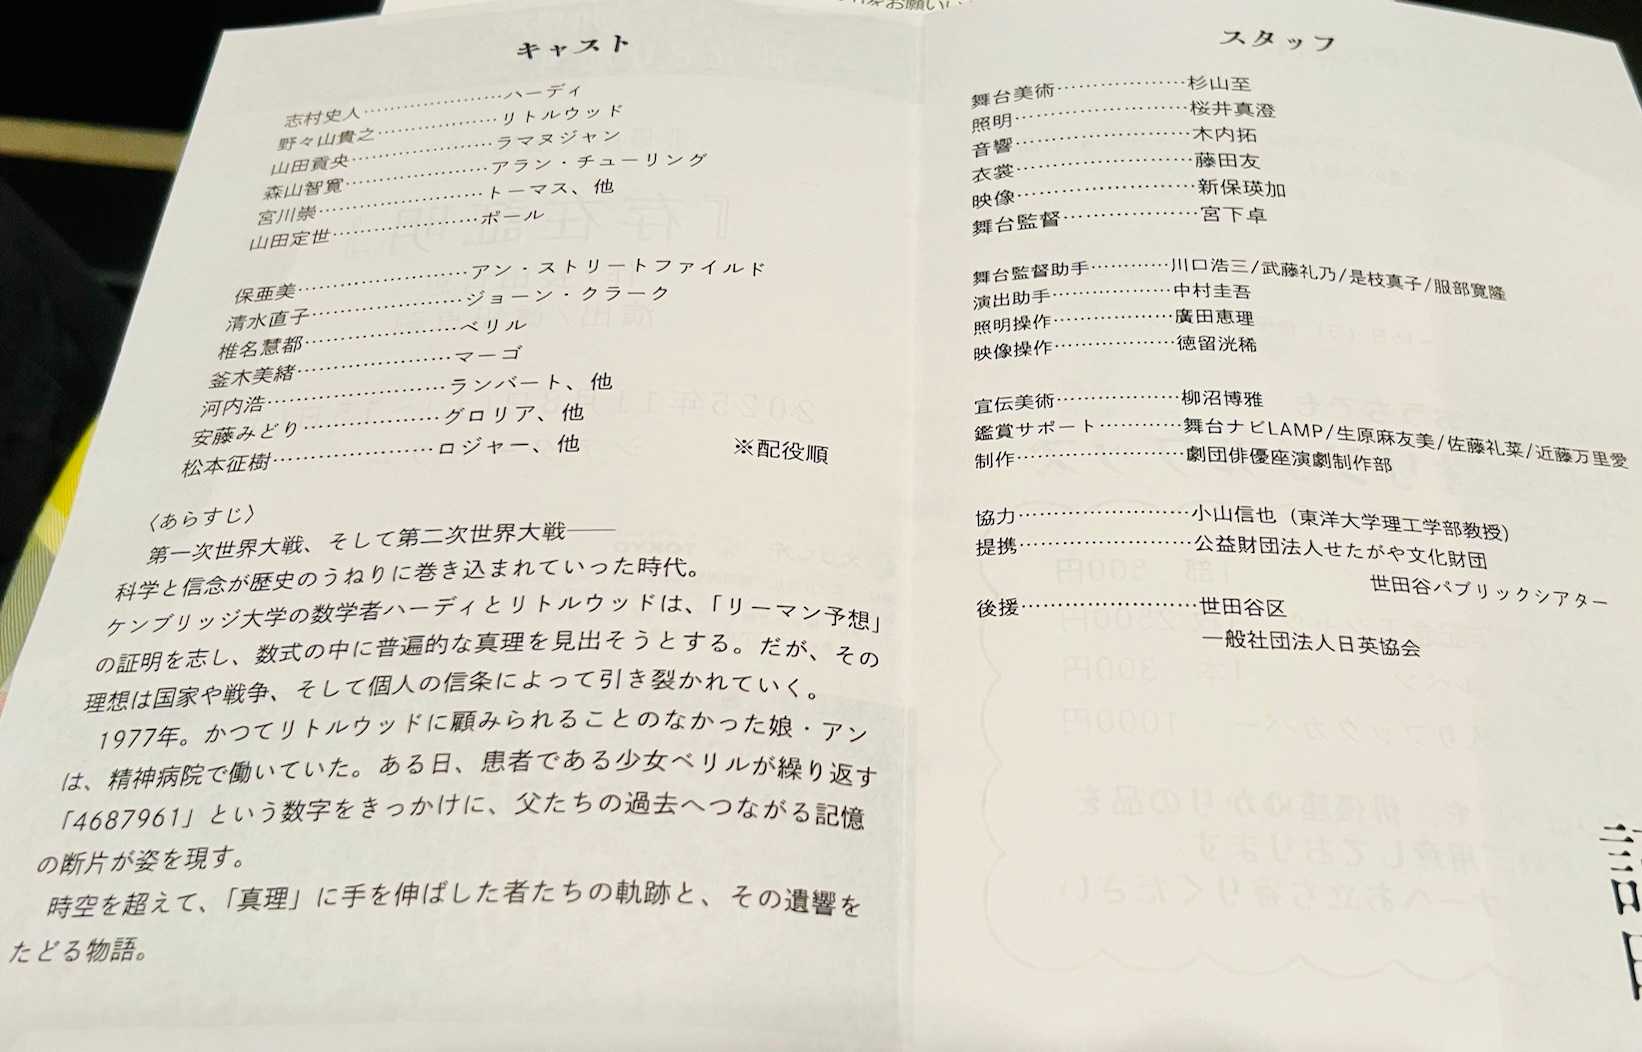 キャスト
志村史人……………………ハーディ
野々山貴之…………………リトルウッド
山田貢央……………………ラマヌジャン
森山智寛……………………アラン・チューリング
宮川崇………………………トーマス、他
山田定世……………………ポール
保亜美………………………アン・ストリートファイルド
清水直子……………………ジョーン・クラーク
椎名慧都……………………ベリル
釜木美緒……………………マーゴ
河内浩………………………ランバート、他
安藤みどり…………………グロリア、他
松本征樹……………………ロジャー、他
※配役順
〈あらすじ〉
第一次世界大戦、そして第二次世界大戦――
科学と信念が歴史のうねりに巻き込まれていった時代。
ケンブリッジ大学の数学者ハーディとリトルウッドは、「リーマン予想」
の証明を志し、数式の中に普遍的な真理を見出そうとする。だが、その
理想は国家や戦争、そして個人の信条によって引き裂かれていく。
1977年。かつてリトルウッドに顧みられることのなかった娘・アン
は、精神病院で働いていた。ある日、患者である少女ベリルが繰り返す
「4687961」という数字をきっかけに、父たちの過去へつながる記憶
の断片が姿を現す。
時空を超えて、「真理」に手を伸ばした者たちの軌跡と、その遺響を
たどる物語。
スタッフ
舞台美術…………………杉山至
照明………………………桜井真澄
音響………………………木内拓
衣裳………………………藤田友
映像………………………新保瑛加
舞台監督…………………宮下卓
舞台監督助手…………川口浩三/武藤礼乃/是枝真子/服部寛隆
演出助手………………中村圭吾
照明操作………………廣田恵理
映像操作………………徳留洸稀
宣伝美術………………柳沼博雅
鑑賞サポート…………舞台ナビLAMP/生原麻友美/佐藤礼菜/近藤万里愛
制作……………………劇団俳優座演劇制作部
協力……………………小山信也（東洋大学理工学部教授）
提携……………………公益財団法人せたがや文化財団
世田谷パブリックシアター
後援……………………世田谷区
一般社団法人日英協会